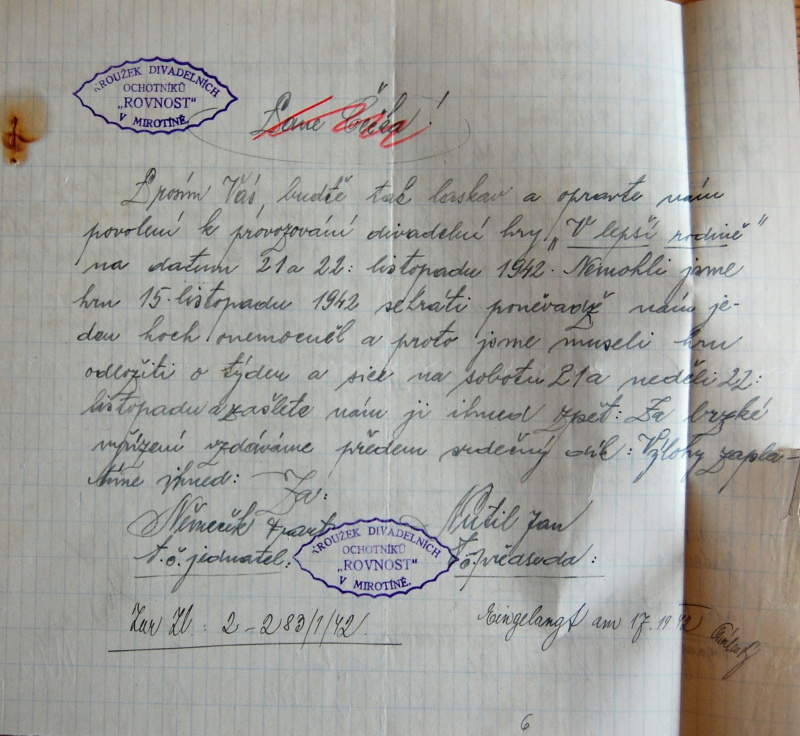 KROUŽEK DIVADELNÍCH
OCHOTNÍKŮ
„ROVNOST"
V MIROTÍNĚ.
Pane !
Prosím Vás, buďtě tak laskav a opravte nám
povolení k provozování divadelní hry „V lepší rodině"
na datum 21 a 22: listopadu 1942. Nemohli jsme
hru 15. listopadu 1942 sehráti poněvadž nám je-
den hoch onemocněl a proto jsme museli hru
odložiti o týden a sice na sobotu 21 a neděli 22:
listopadu a zašlete nám ji ihned zpět: Za brzké
vyřízení vzdáváme předem srdečný dík: Výlohy zapla-
tíme ihned: Za:
Němeček Kutil Jan
t. č. jednatel: t. č. předseda:
KROUŽEK DIVADELNÍCH
OCHOTNÍKŮ
„ROVNOST"
V MIROTÍNĚ.
Zur Zl: 2-283/1/42. Eingelangt am 17.
6